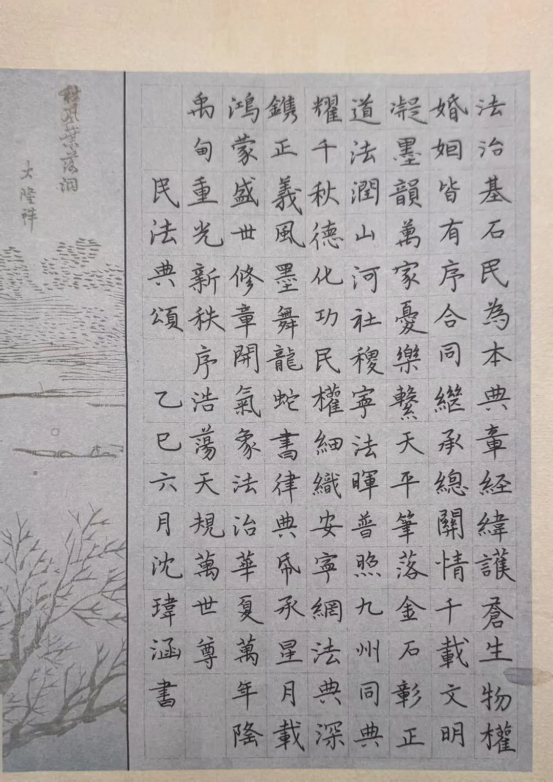 法治基石民為本典章經緯護蒼生物權
婚姻皆有序合同繼承總關情千載文明
凝墨韻萬家憂樂繫天平筆落金石彰正
道法潤山河社稷寧法暉普照九州同典
耀千秋德化功民權細織安寧網法典深
鐫正義風墨舞龍蛇書律典帋承星月載
鴻蒙盛世修章開氣象法治華夏萬年隆
禹甸重光新秩序浩蕩天規萬世尊
民法典頌 乙巳六月沈瑋涵書
大隆祥